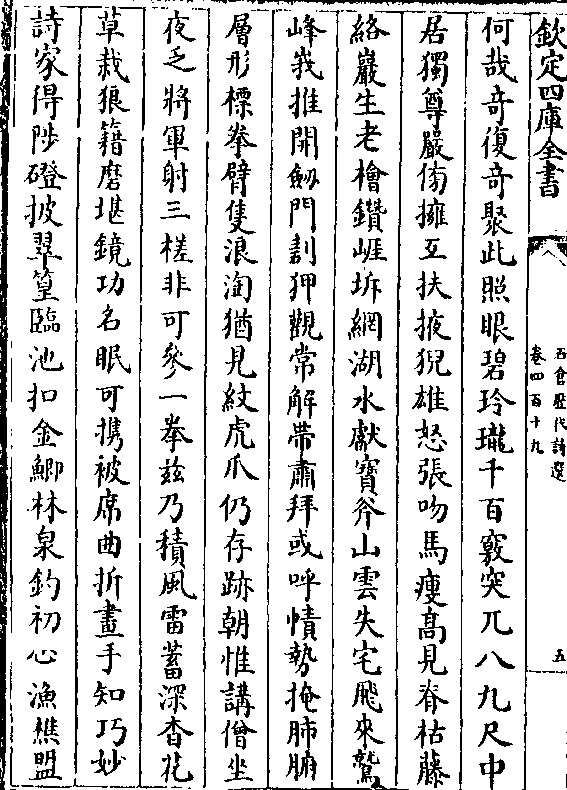 欽定四庫全書
石倉歷代詩選
卷四百十九
五
何哉奇復奇聚此照眼碧玲瓏千百竅突兀八九尺中
居獨尊嚴傍擁互扶掖猊雄怒張吻馬瘦高見脊枯藤
絡巖生老檜鑽崕坼網湖水獻寶斧山雲失宅飛來鷲
峰峩推開劔門割狎觀常解帶肅拜或呼幘勢掩肺腑
層形標拳臂隻浪淘猶見紋虎爪仍存跡朝惟講僧坐
夜乏將軍射三槎非可參一拳兹乃積風雷蓄深杳花
草栽狼籍磨堪鏡功名眠可携被席曲折畫手知巧妙
詩家得陟磴披翠篁臨池扣金鯽林泉釣初心漁樵盟